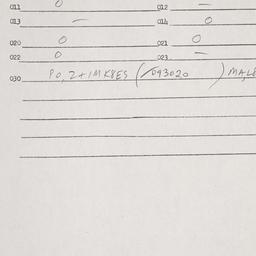 011 0 012 —
013 — 014 0
020 0 021 0
022 0 023 —
030 PO, 2+1M K8ES (093020) MALE